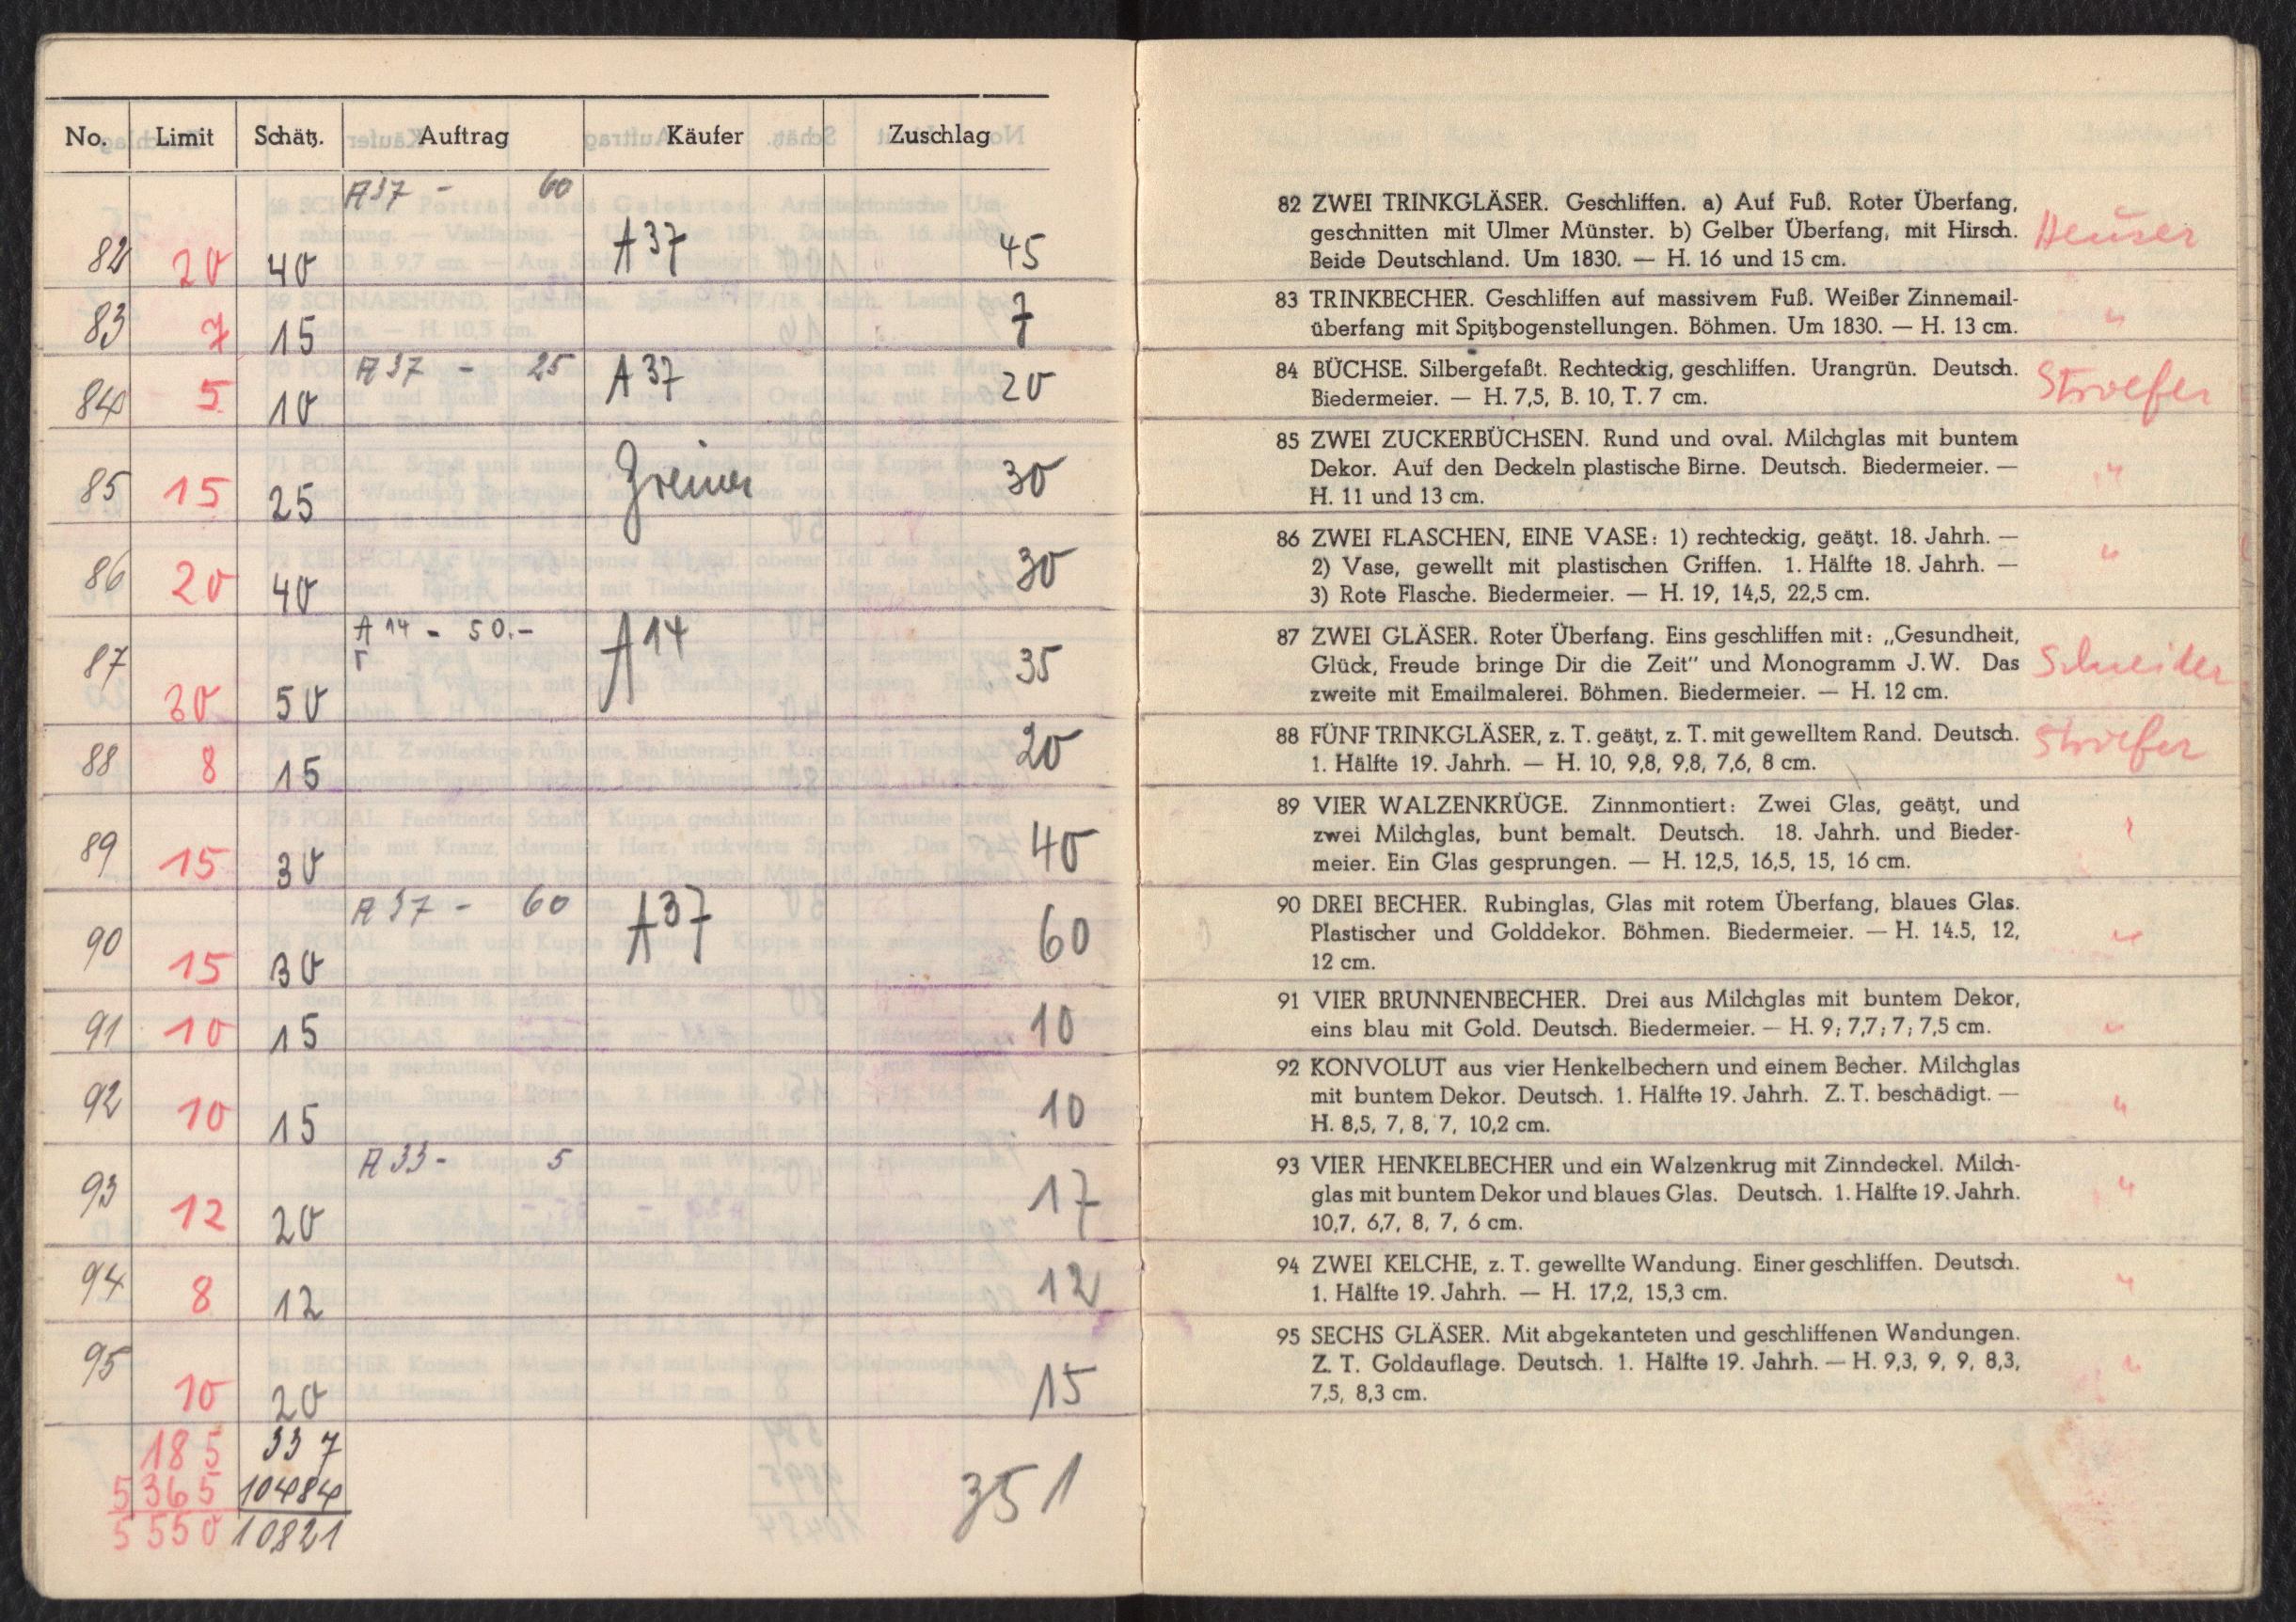 No. Limit Schätz. Auftrag Käufer Zuschlag
A37 - 60
82 20 40 A37 45
83 7 15 7
A37 - 25
84 5 10 A37 20
85 15 25 Greiner 30
86 20 40 30
A14 - 50.-
87 30 50 A14 35
88 8 15 20
89 15 30 40
A37 - 60
90 15 30 A37 60
91 10 15 10
92 10 15 10
A33 - 5
93 12 20 17
94 8 12 12
95 10 20 15
185 337
5365 10484 351
5550 10821
82 ZWEI TRINKGLÄSER. Geschliffen. a) Auf Fuß. Roter Überfang,
geschnitten mit Ulmer Münster. b) Gelber Überfang, mit Hirsch. Heuser
Beide Deutschland. Um 1830. — H. 16 und 15 cm.
83 TRINKBECHER. Geschliffen auf massivem Fuß. Weißer Zinnemail-
überfang mit Spitzbogenstellungen. Böhmen. Um 1830. — H. 13 cm. "
84 BÜCHSE. Silbergefaßt. Rechteckig, geschliffen. Urangrün. Deutsch. Stroefer
Biedermeier. — H. 7,5, B. 10, T. 7 cm.
85 ZWEI ZUCKERBÜCHSEN. Rund und oval. Milchglas mit buntem
Dekor. Auf den Deckeln plastische Birne. Deutsch. Biedermeier. — "
H. 11 und 13 cm.
86 ZWEI FLASCHEN, EINE VASE: 1) rechteckig, geätzt. 18. Jahrh. — "
2) Vase, gewellt mit plastischen Griffen. 1. Hälfte 18. Jahrh. —
3) Rote Flasche. Biedermeier. — H. 19, 14,5, 22,5 cm.
87 ZWEI GLÄSER. Roter Überfang. Eins geschliffen mit: „Gesundheit,
Glück, Freude bringe Dir die Zeit" und Monogramm J. W. Das Schneider
zweite mit Emailmalerei. Böhmen. Biedermeier. — H. 12 cm.
88 FÜNF TRINKGLÄSER, z. T. geätzt, z. T. mit gewelltem Rand. Deutsch. Stroefer
1. Hälfte 19. Jahrh. — H. 10, 9,8, 9,8, 7,6, 8 cm.
89 VIER WALZENKRÜGE. Zinnmontiert: Zwei Glas, geätzt, und
zwei Milchglas, bunt bemalt. Deutsch. 18. Jahrh. und Bieder- "
meier. Ein Glas gesprungen. — H. 12,5, 16,5, 15, 16 cm.
90 DREI BECHER. Rubinglas, Glas mit rotem Überfang, blaues Glas.
Plastischer und Golddekor. Böhmen. Biedermeier. — H. 14.5, 12, "
12 cm.
91 VIER BRUNNENBECHER. Drei aus Milchglas mit buntem Dekor,
eins blau mit Gold. Deutsch. Biedermeier. — H. 9; 7,7; 7; 7,5 cm. "
92 KONVOLUT aus vier Henkelbechern und einem Becher. Milchglas
mit buntem Dekor. Deutsch. 1. Hälfte 19. Jahrh. Z. T. beschädigt. — "
H. 8,5, 7, 8, 7, 10,2 cm.
93 VIER HENKELBECHER und ein Walzenkrug mit Zinndeckel. Milch-
glas mit buntem Dekor und blaues Glas. Deutsch. 1. Hälfte 19. Jahrh. "
10,7, 6,7, 8, 7, 6 cm.
94 ZWEI KELCHE, z. T. gewellte Wandung. Einer geschliffen. Deutsch.
1. Hälfte 19. Jahrh. — H. 17,2, 15,3 cm. "
95 SECHS GLÄSER. Mit abgekanteten und geschliffenen Wandungen.
Z. T. Goldauflage. Deutsch. 1. Hälfte 19. Jahrh. — H. 9,3, 9, 9, 8,3, "
7,5, 8,3 cm.